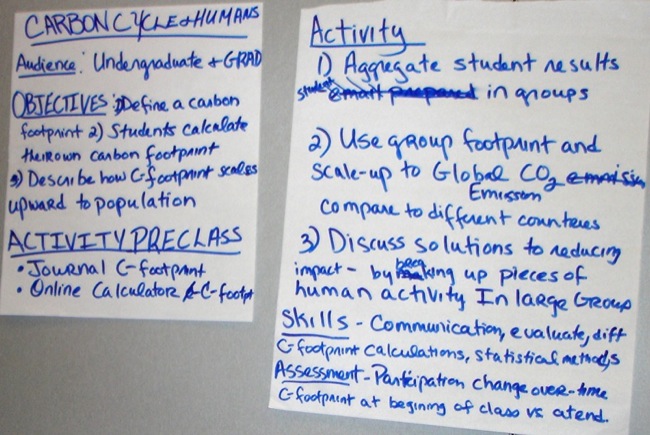 CARBON CYCLE & HUMANS
Audience: Undergraduate & GRAD
OBJECTIVES: 1) Define a carbon
footprint 2) Students calculate
their own carbon footprint
3) Describe how C-footprint scales
upward to population
ACTIVITY PRECLASS
• Journal C-footprint
• Online Calculator C-footpt
Activity
1) Aggregate student results
student in groups
2) Use group footprint and
scale-up to Global CO2 emission
Emission
compare to different countries
3) Discuss solutions to reducing
impact - by breaking up pieces of
human activity In large Group
Skills - Communication, evaluate, diff
C-footprint calculations, statistical methods
Assessment - Participation change over-time
C-footprint at begining of class vs at end.